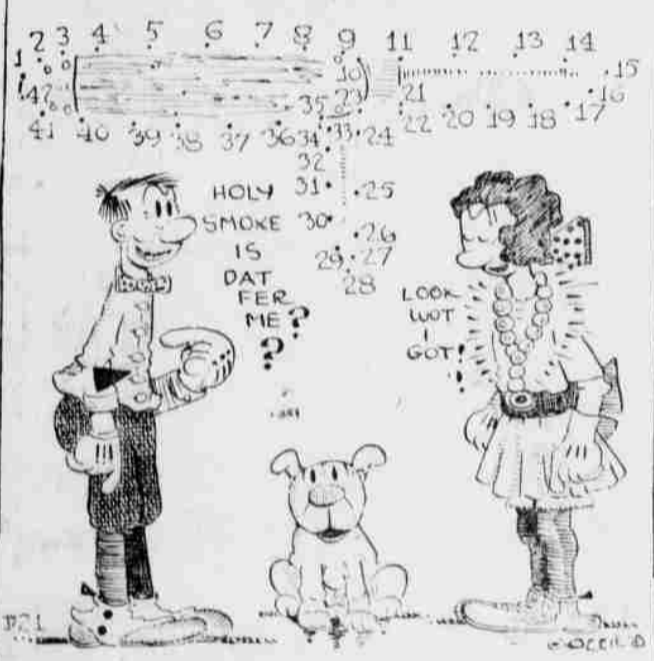 2 3 4 5 6 7 8 9 11 12 13 14
1 10 15
42 35 23 21 16
41 40 39 38 37 36 34 33 24 22 20 19 18 17
32
31 25
30
26
29 27
28
HOLY
SMOKE
IS
DAT
FER
ME?
?
LOOK
WOT
I
GOT!
!